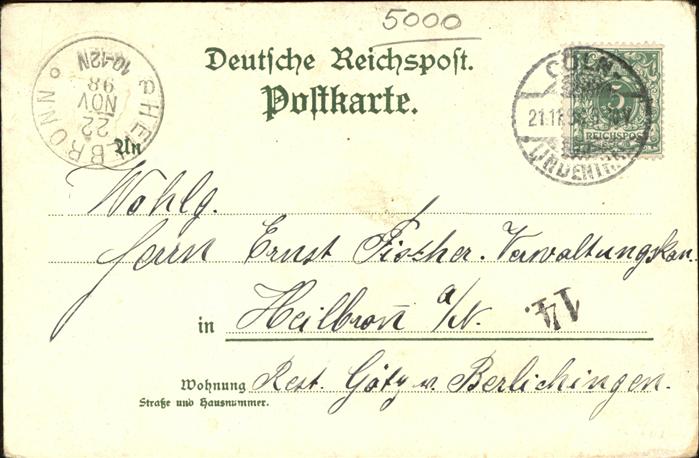 5000
Deutsche Reichspost.
Postkarte.
HEILBRONN
22
NOV
98
10-12N
CÖLN-
21.11.98
LINDENTHAL
5
REICHSPOST
An
Wohlg.
Herrn Ernst Fischer. Verwaltungskan.
in Heilbron̄ a/N.
14.
Wohnung Rest. Götz v. Berlichingen.
Straße und Hausnummer.